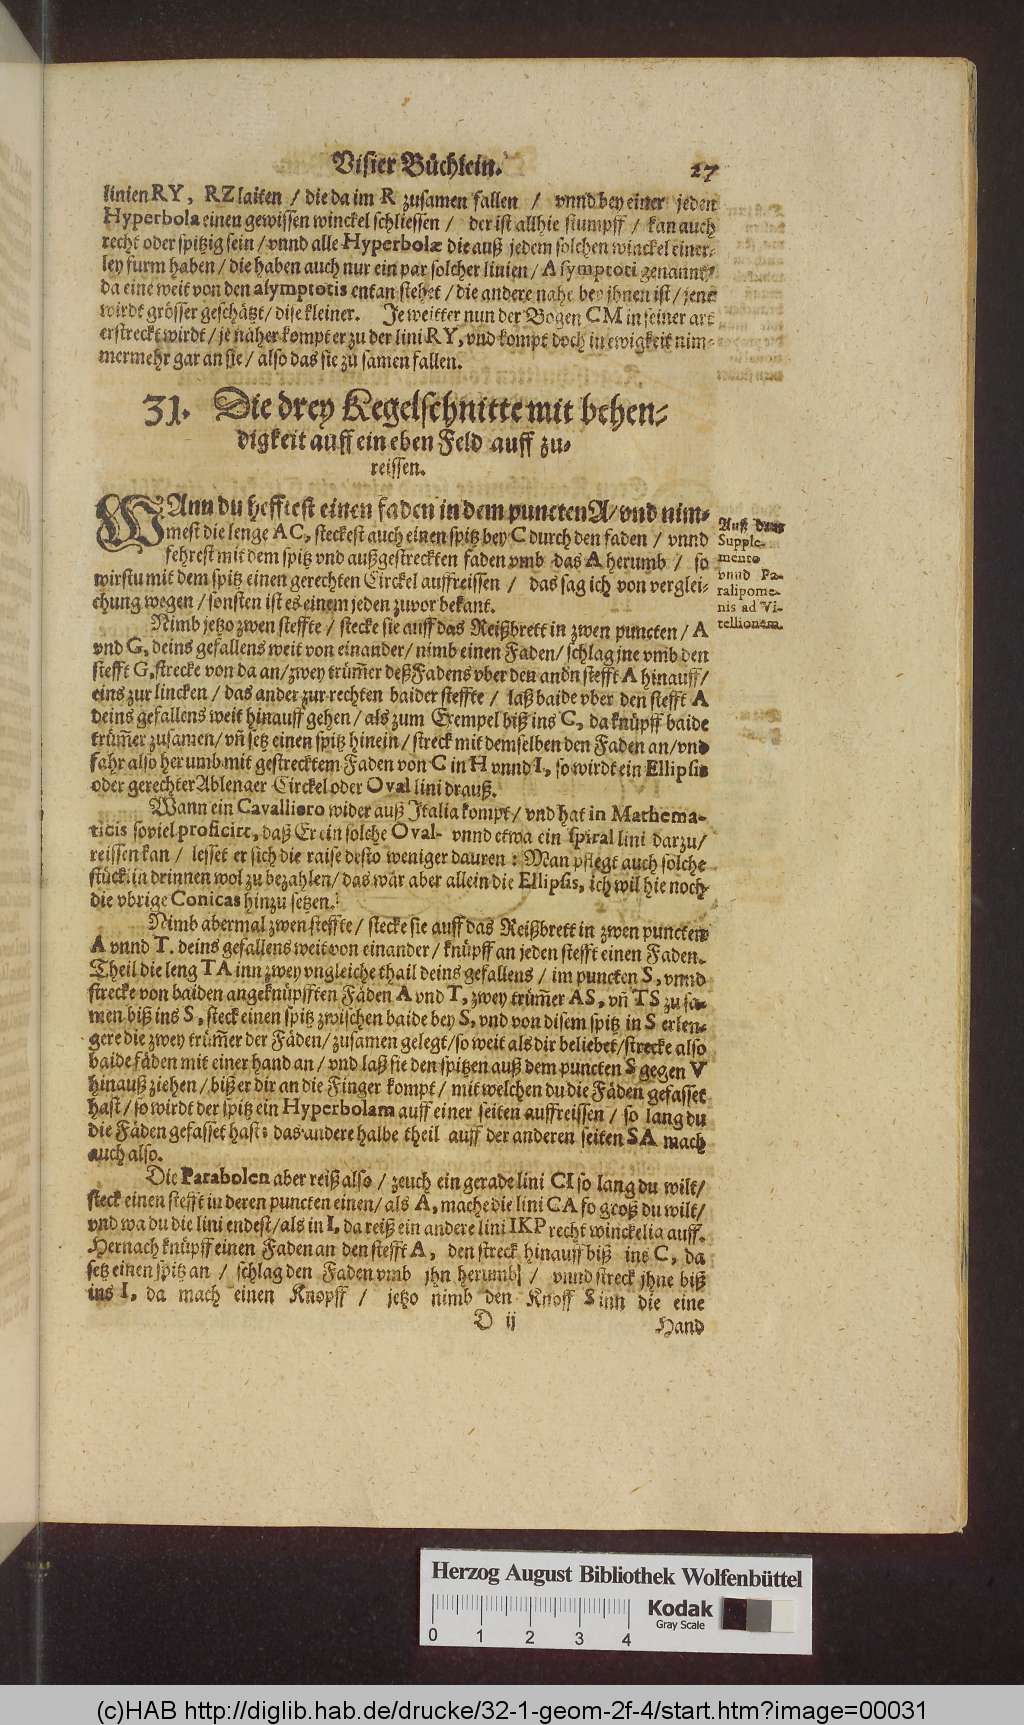 Visier Büchlein. 27
linien RY, RZ laiten / die da im R zusamen fallen / vnnd bey einer jeden
Hyperbola einen gewissen winckel schliessen / der ist allhie stumpff / kan auch
recht oder spitzig sein / vnnd alle Hyperbolæ die auß jedem solchen winckel einer-
ley furm haben / die haben auch nur ein par solcher linien / Asymptoti genannt /
da eine weit von den asymptotis entan stehet / die andere nahe bey jhnen ist / jene
wirdt grösser geschätzt / dise kleiner. Je weitter nun der Bogen CM in seiner art
erstreckt wirdt / je näher kompt er zu der lini RY, vnd kompt doch in ewigkeit nim-
mermehr gar an sie / also das sie zu samen fallen.
31. Die drey Kegelschnitte mit behen-
digkeit auff ein eben Feld auff zu-
reissen.
WAnn du hefftest einen faden in dem puncten A / vnd nim-
mest die lenge AC, steckest auch einen spitz bey C durch den faden / vnnd
fehrest mit dem spitz vnd außgestreckten faden vmb das A herumb / so
wirstu mit dem spitz einen gerechten Circkel auffreissen / das sag ich von verglei-
chung wegen / sonsten ist es einem jeden zuvor bekant.
Auß dem
Supple-
mento
vnnd Pa-
ralipome-
nis ad Vi-
tellionem.
Nimb jetzo zwen steffte / stecke sie auff das Reißbrett in zwen puncten / A
vnd G, deins gefallens weit von einander / nimb einen Faden / schlag jne vmb den
stefft G, strecke von da an / zwey trüm̄er deß Fadens vber den andn stefft A hinauff /
eins zur lincken / das ander zur rechten baider steffte / laß baide vber den stefft A
deins gefallens weit hinauff gehen / als zum Exempel biß ins C, da knüpff baide
trüm̄er zusamen / vn̄ setz einen spitz hinein / streck mit demselben den Faden an / vnd
fahr also herumb mit gestrecktem Faden von C in H vnnd I, so wirdt ein Ellipsis
oder gerechter Ablenger Circkel oder Oval lini drauß.
Wann ein Cavalliero wider auß Italia kompt / vnd hat in Mathema-
ticis soviel proficirt, daß Er ein solche Oval- vnnd etwa ein spiral lini darzu /
reissen kan / lesset er sich die raise desto weniger dauren: Man pflegt auch solche
stück in drinnen wol zu bezahlen / das wär aber allein die Ellipsis, ich wil hie noch
die vbrige Conicas hinzu setzen.
Nimb abermal zwen steffte / stecke sie auff das Reißbrett in zwen puncten
A vnnd T. deins gefallens weit von einander / knüpff an jeden stefft einen Faden.
Theil die leng TA inn zwey vngleiche thail deins gefallens / im puncten S, vnnd
strecke von baiden angeknüpfften Fäden A vnd T, zwey trüm̄er AS, vn̄ TS zu sa-
men biß ins S, steck einen spitz zwischen baide bey S, vnd von disem spitz in S erlen-
gere die zwey trüm̄er der Fäden / zusamen gelegt / so weit als dir beliebet / strecke also
baide fäden mit einer hand an / vnd laß sie den spitzen auß dem puncten S gegen V
hinauß ziehen / biß er dir an die Finger kompt / mit welchen du die Fäden gefasset
hast / so wirdt der spitz ein Hyperbolam auff einer seiten auffreissen / so lang du
die Fäden gefasset hast: das andere halbe theil auff der anderen seiten SA mach
auch also.
Die Parabolen aber reiß also / zeuch ein gerade lini CI so lang du wilt /
steck einen stefft in deren puncten einen / als A, mache die lini CA so groß du wilt /
vnd wa du die lini endest / als in I, da reiß ein andere lini IKP recht winckelia auff.
Hernach knüpff einen Faden an den stefft A, den streck hinauff biß ins C, da
setz einen spitz an / schlag den Faden vmb jhn herumb / vnnd streck jhne biß
ins I, da mach einen Knopff / jetzo nimb den Knoff S inn die eine
D ij Hand
Herzog August Bibliothek Wolfenbüttel
0 1 2 3 4
Kodak
Gray Scale
(c)HAB http://diglib.hab.de/drucke/32-1-geom-2f-4/start.htm?image=00031